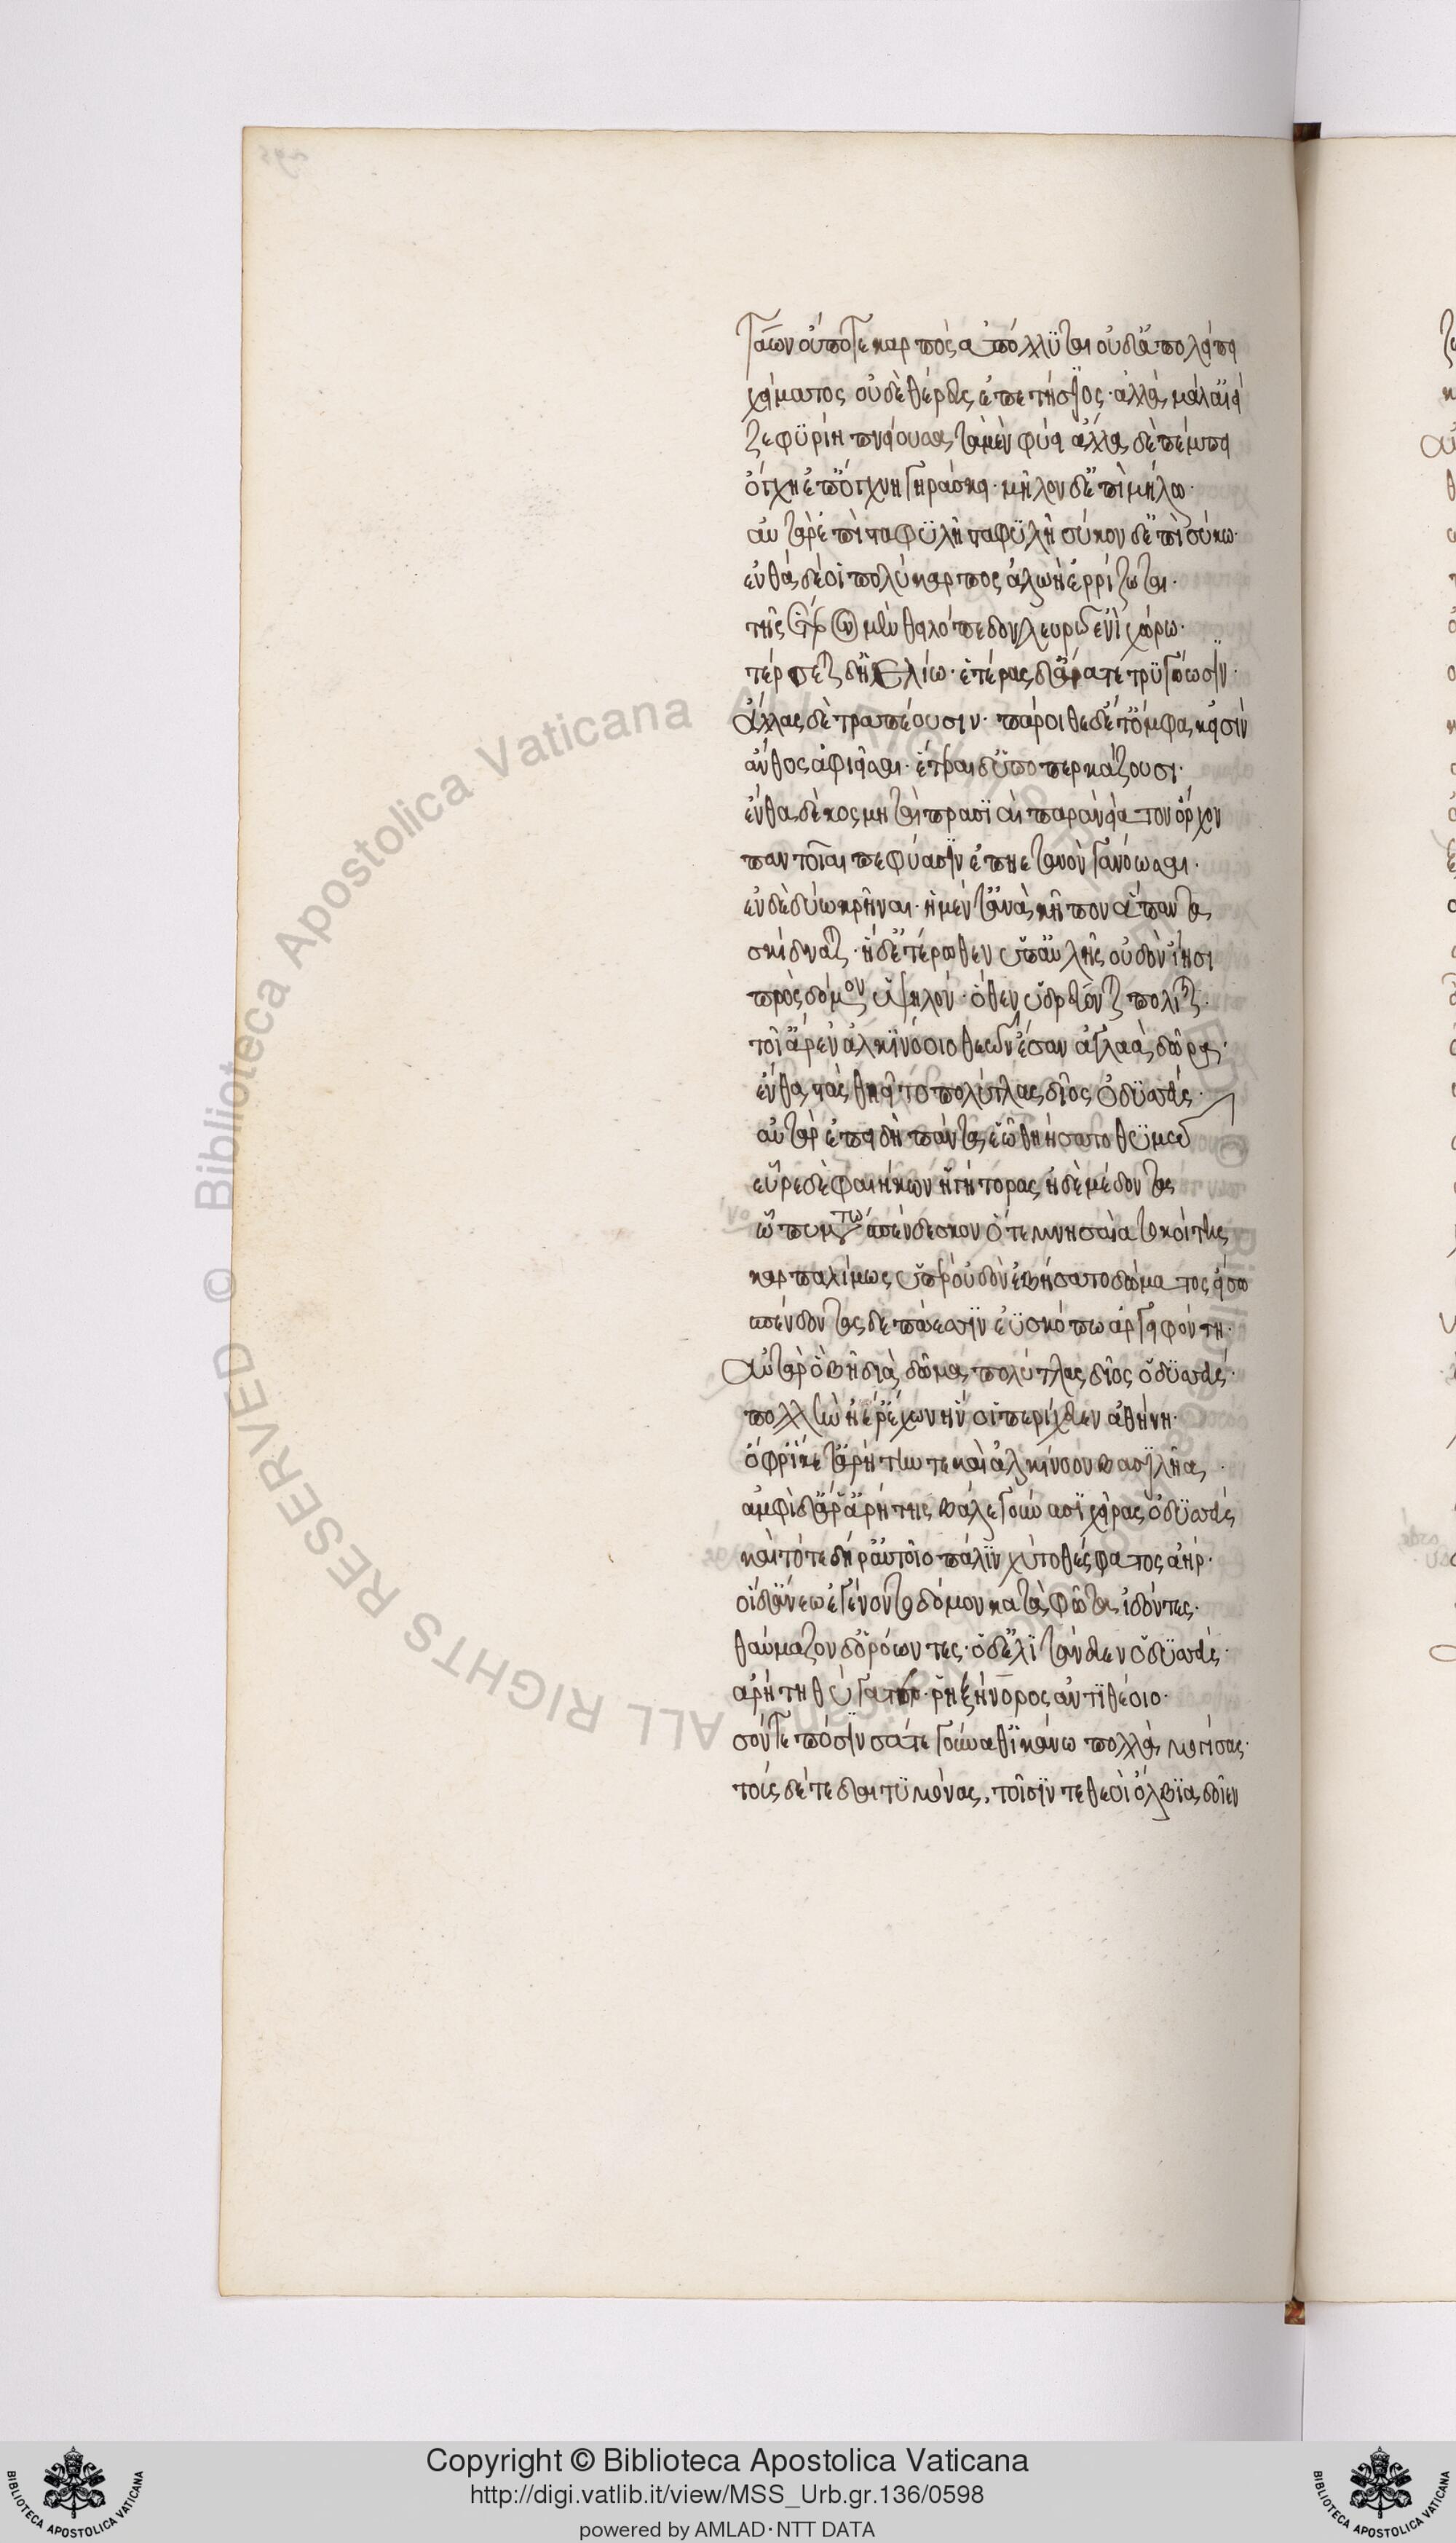 Τάων οὔποτε καρπὸς ἀπόλλϋται οὐδ' ἀπολείπει
χείματος οὐδὲ θέρευς ἐπετήσϊος· ἀλλὰ μάλ' αἰεὶ
ζεφϋρίη πνείουσα τὰ μὲν φύει ἄλλα δὲ πέμπει
ὄγχνη ἐπ' ὄγχνη γηράσκει· μῆλον δ' ἐπὶ μήλω·
αὐτὰρ ἐπὶ σταφϋλῆ σταφϋλὴ σύκον δ' ἐπὶ σύκω·
ἐνθα δέ οἱ πολύκαρπος ἀλωὴ ἐρρίζωται·
τῆς ἕτερον μὲν θειλόπεδον λευρῶ ἐνὶ χώρω·
τέρσεται ἠελίω· ἑτέρας δ' ἄρα τε τρϋγόωσϊν·
ἄλλας δὲ τραπέουσιν· πάροιθε δέ τ' ὄμφακες εἰσὶν
ἄνθος ἀφιεῖσαι· ἕτεραι δ' ὑποπερκάζουσι·
ἔνθα δὲ κοσμηταὶ πρασϊαὶ παρὰ νείατον ὄρχον
παντοῖαι πεφύασϊν ἐπηετανὸν γανόωσαι·
ἐν δὲ δύω κρῆναι· ἡ μέν τ' ἀνὰ κῆπον ἅπαντα
σκίδναται· ἡ δ' ἑτέρωθεν ὑπ' αὐλῆς οὐδὸν ἵησι
πρὸς δόμον ὑψηλόν· ὅθεν ὑδρεύοντο πολῖται·
τοῖ' ἄρ' ἐν ἀλκϊνόοιο θεῶν ἔσαν ἀγλαὰ δῶρα·
ἔνθα στὰς θηεῖτο πολύτλας δῖος ὀδϋσσεύς·
αὐτὰρ ἐπειδὴ πάντα ἑῶ θηήσατο θϋμῶ
εὗρε δὲ φαιήκων ἡγήτορας ἠδὲ μέδοντας
ὧ πυμάτω σπένδεσκον ὅτε μνησαίατο κοίτης
καρπαλίμως ὑπὲρ οὐδὸν ἐβήσατο δώματος εἴσω
σπένδοντας δεπάεσσϊν ἐϋσκόπω ἀργειφόντη·
Αὐτὰρ ὁ βῆ διὰ δῶμα πολύτλας δῖος ὀδϋσσεύς·
πολλὴν ἠέρ' ἔχων ἥν οἱ περίχευεν ἀθήνη·
ὄφρ' ἵκετ' ἀρήτην τε καὶ ἀλκίνοον βασϊλῆα·
ἀμφὶ δ' ἄρ' ἀρήτης βάλε γούνασϊ χεῖρας ὀδϋσσεύς
καὶ τότε δή ῥ' αὐτοῖο πάλϊν χύτο θέσφατος ἀήρ·
οἱ δ' ἄνεω ἐγένοντο δόμον κάτα φῶτα ἰδόντες·
θαύμαζον δ' ὁρόωντες· ὁ δ' ἐλϊτάνευεν ὀδϋσσεύς·
ἀρήτη θύγατερ ῥηξήνορος ἀντϊθέοιο·
σόν τε πόσϊν σά τε γούναθ' ἱκάνω πολλὰ μογήσας·
τούς δέ τε δαιτϋμόνας, τοῖσϊν τε θεοὶ ὄλβϊα δοῖεν
© Biblioteca Apostolica Vaticana ALL RIGHTS RESERVED
BIBLIOTECA APOSTOLICA VATICANA
Copyright © Biblioteca Apostolica Vaticana
http://digi.vatlib.it/view/MSS_Urb.gr.136/0598
powered by AMLAD·NTT DATA
BIBLIOTECA APOSTOLICA VATICANA